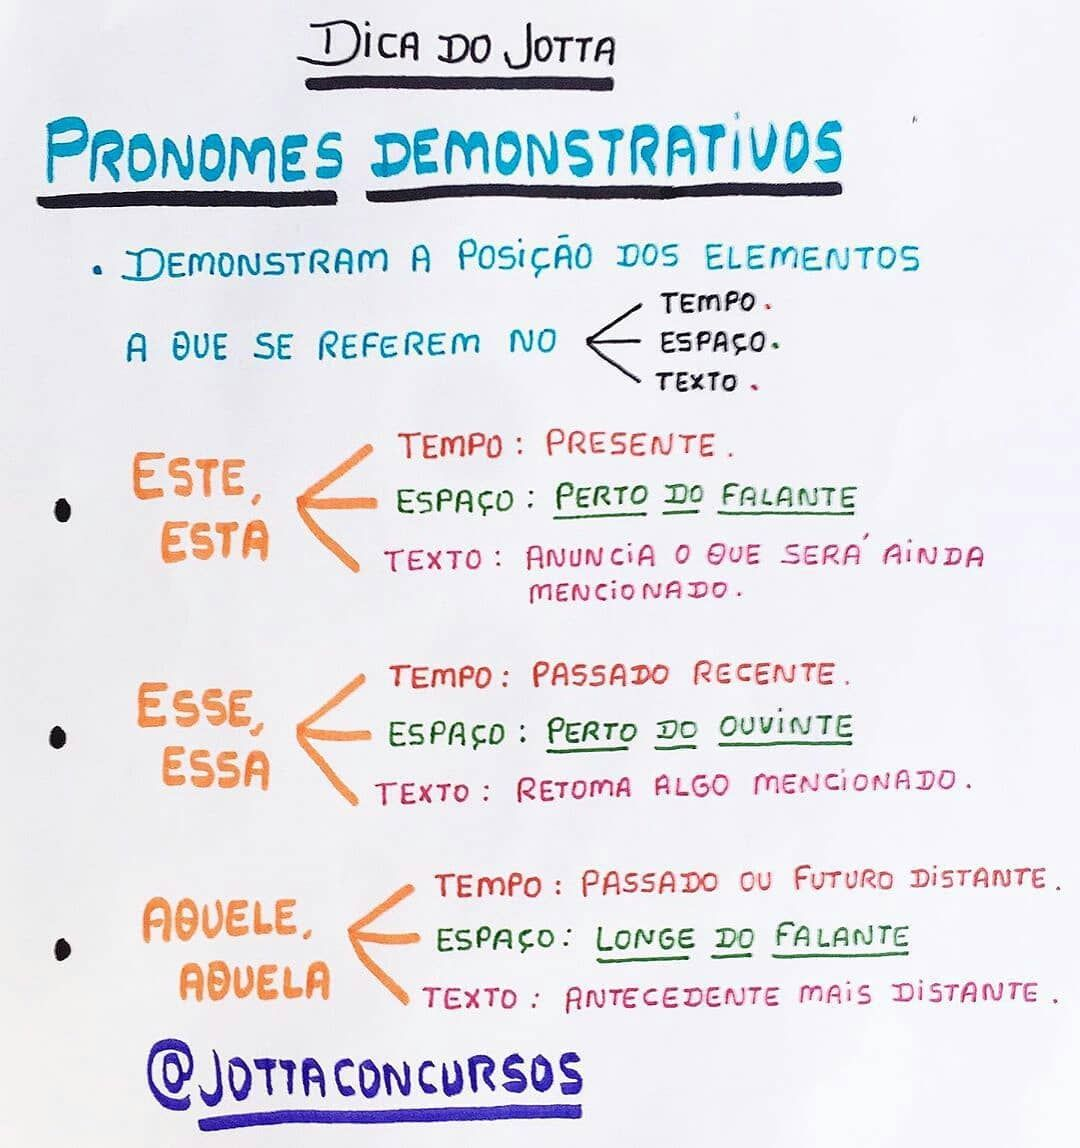 DICA DO JOTTA
PRONOMES DEMONSTRATIVOS
• DEMONSTRAM A POSIÇÃO DOS ELEMENTOS
A QUE SE REFEREM NO
TEMPO.
ESPAÇO.
TEXTO.
• ESTE,
ESTA
TEMPO: PRESENTE.
ESPAÇO: PERTO DO FALANTE
TEXTO: ANUNCIA O QUE SERÁ AINDA
MENCIONADO.
• ESSE,
ESSA
TEMPO: PASSADO RECENTE.
ESPAÇO: PERTO DO OUVINTE
TEXTO: RETOMA ALGO MENCIONADO.
• AQUELE,
AQUELA
TEMPO: PASSADO OU FUTURO DISTANTE.
ESPAÇO: LONGE DO FALANTE
TEXTO: ANTECEDENTE MAIS DISTANTE.
@JOTTACONCURSOS